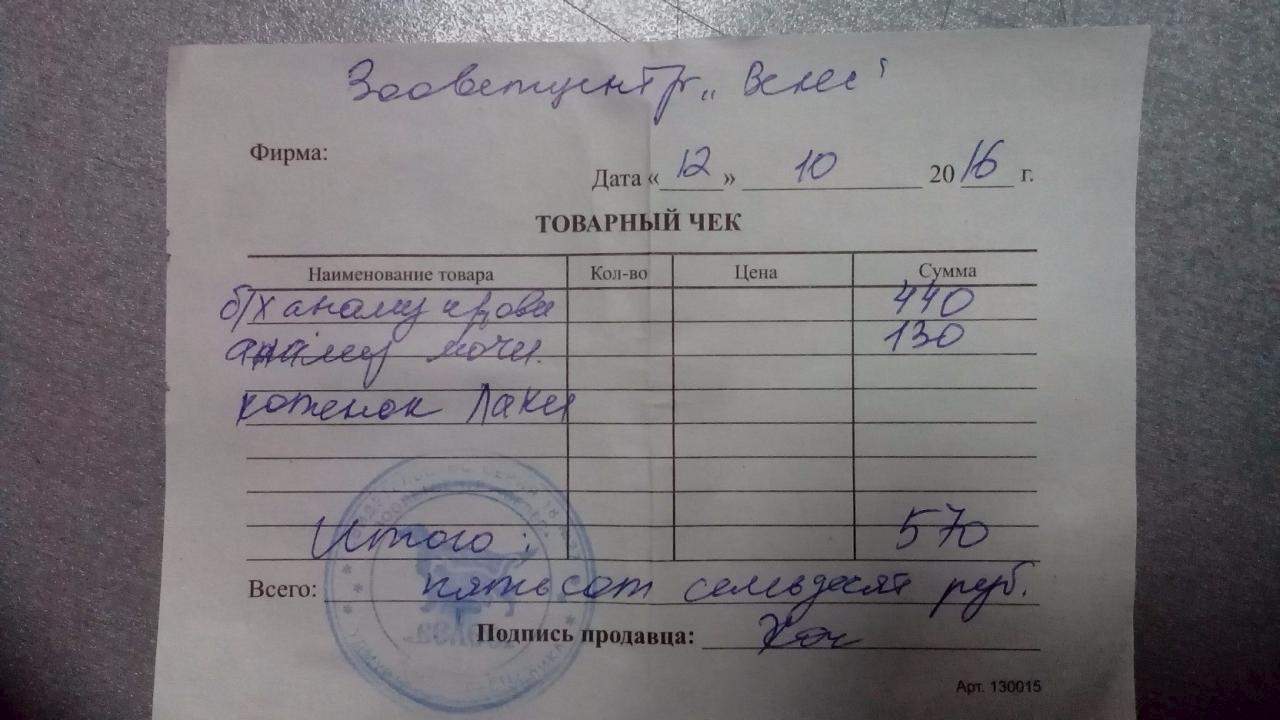 Зооветцентр „Велес"
Фирма:
Дата «12» 10 2016 г.
ТОВАРНЫЙ ЧЕК
Наименование товара Кол-во Цена Сумма
б/х анализ крови 440
анализ мочи. 130
котенок Лаки
Итого: 570
Всего: пятьсот семьдесят руб.
Подпись продавца:
ВЕЛЕС
Арт. 130015